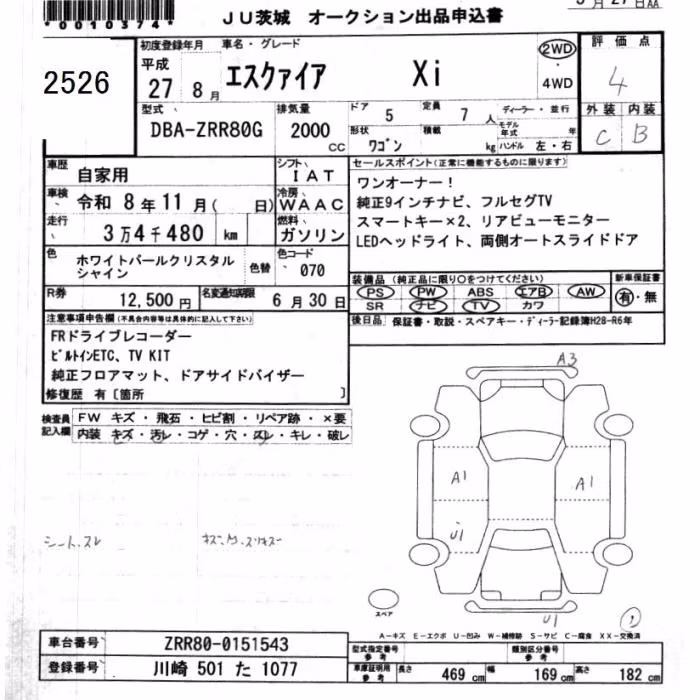 *0010374*
JU茨城 オークション出品申込書
3月27日AA
2526
初度登録年月 車名・グレード
平成
27 8月 エスクァイア Xi
2WD
4WD
評価点
4
外装 内装
C B
型式 排気量 ドア 定員 ディーラー・並行
DBA-ZRR80G 2000 cc 5 7人 モデル年式 年
形状 積載 ワゴン kg ハンドル 左・右
車歴 自家用 シフト IAT
車検 令和 8年 11月( 日) 冷房 WAAC
走行 3万4千480 km 燃料 ガソリン
色 ホワイトパールクリスタル
シャイン 色替 色コード 070
R券 12,500円 名変通知期限 6月30日
セールスポイント(正常に機能するものに限ります)
ワンオーナー!
純正9インチナビ、フルセグTV
スマートキー×2、リアビューモニター
LEDヘッドライト、両側オートスライドドア
装備品(純正品に限り○をつけてください) 新車保証書
PS PW ABS エアB AW 有・無
SR ナビ TV カワ
後日品 保証書・取説・スペアキー・ディーラー記録簿H28-R6年
注意事項申告欄(不具合内容等は具体的に記入して下さい)
FRドライブレコーダー
ビルトインETC、TV KIT
純正フロアマット、ドアサイドバイザー
修復歴 有〔箇所 〕
検査員記入欄
FW キズ・飛石・ヒビ割・リペア跡・×要
内装 キズ・汚レ・コゲ・穴・スレ・キレ・破レ
シート、スレ
A3
A1
A1
U1
U1
スペア
1
A―キズ E―エクボ U―凹み W―補修跡 S―サビ C―腐食 XX―交換済
車台番号 ZRR80-0151543
登録番号 川崎 501 た 1077
型式指定番号 参考 類別区分番号 参考
車庫証明用 参考 長さ 469cm 幅 169cm 高さ 182cm